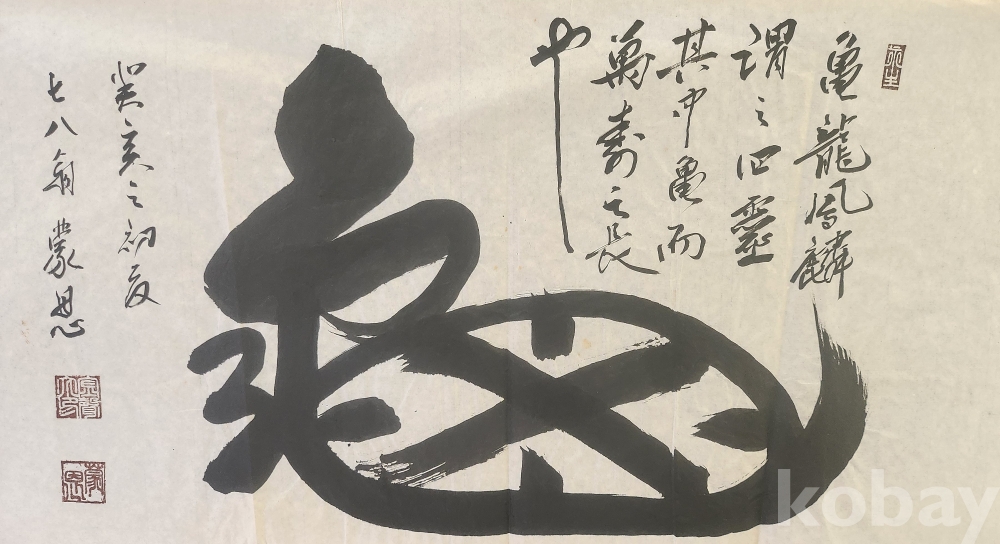 龜
龜龍鳳麟
謂之四靈
其中龜而
萬壽之長
也
癸亥之初夏
七八翁 蒙思
kobay